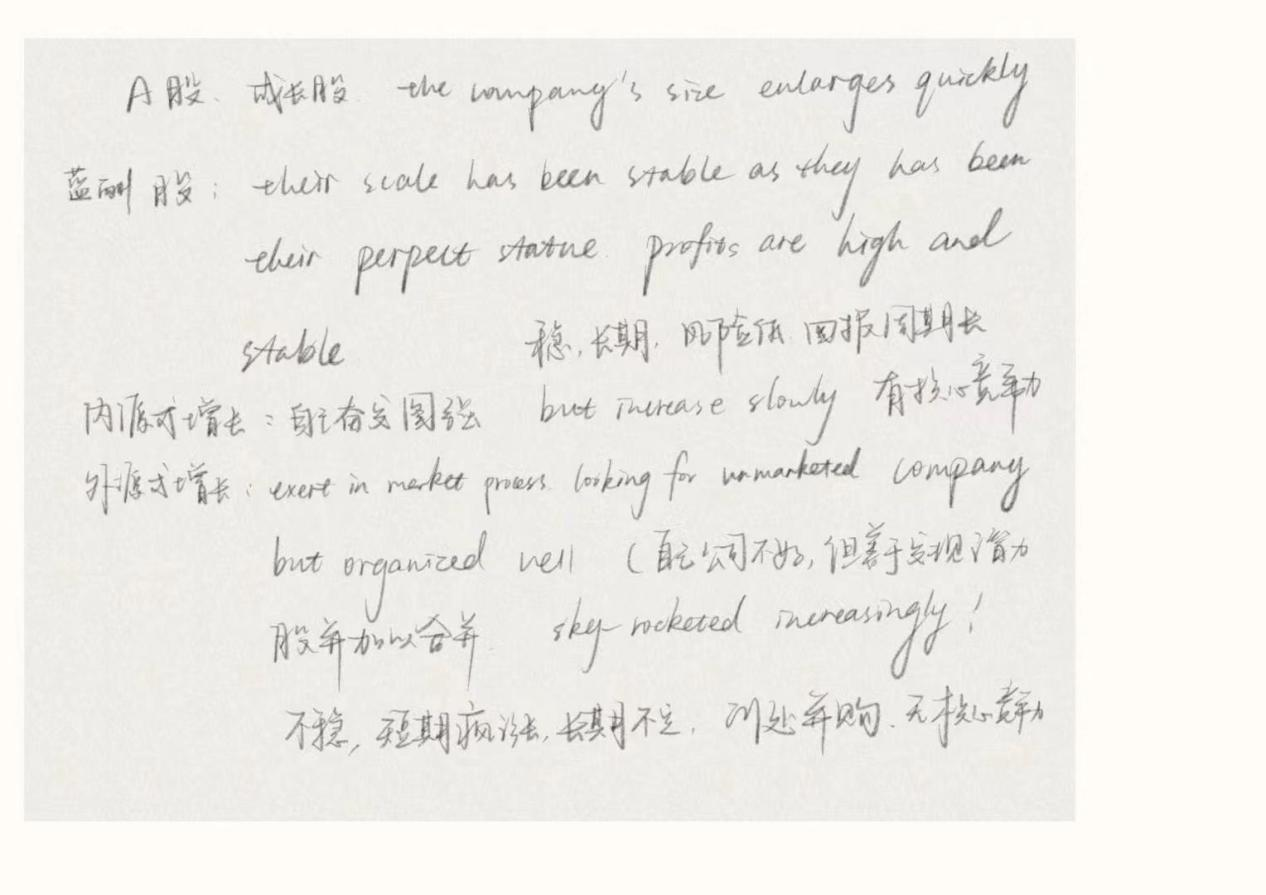 A股、成长股 the company's size enlarges quickly
蓝酬股: their scale has been stable as they has been
their perpect statue. profits are high and
stable 稳,长期,风险低 回报周期长
内源式增长:自立奋发图强 but increase slowly 有核心竞争力
外源式增长: exert in market process. looking for unmarketed company
but organized well (自己公司不好,但善于发现潜力
股并加以合并. sky-rocketed increasingly!
不稳,短期疯涨,长期不定, 并购、无核心竞争力